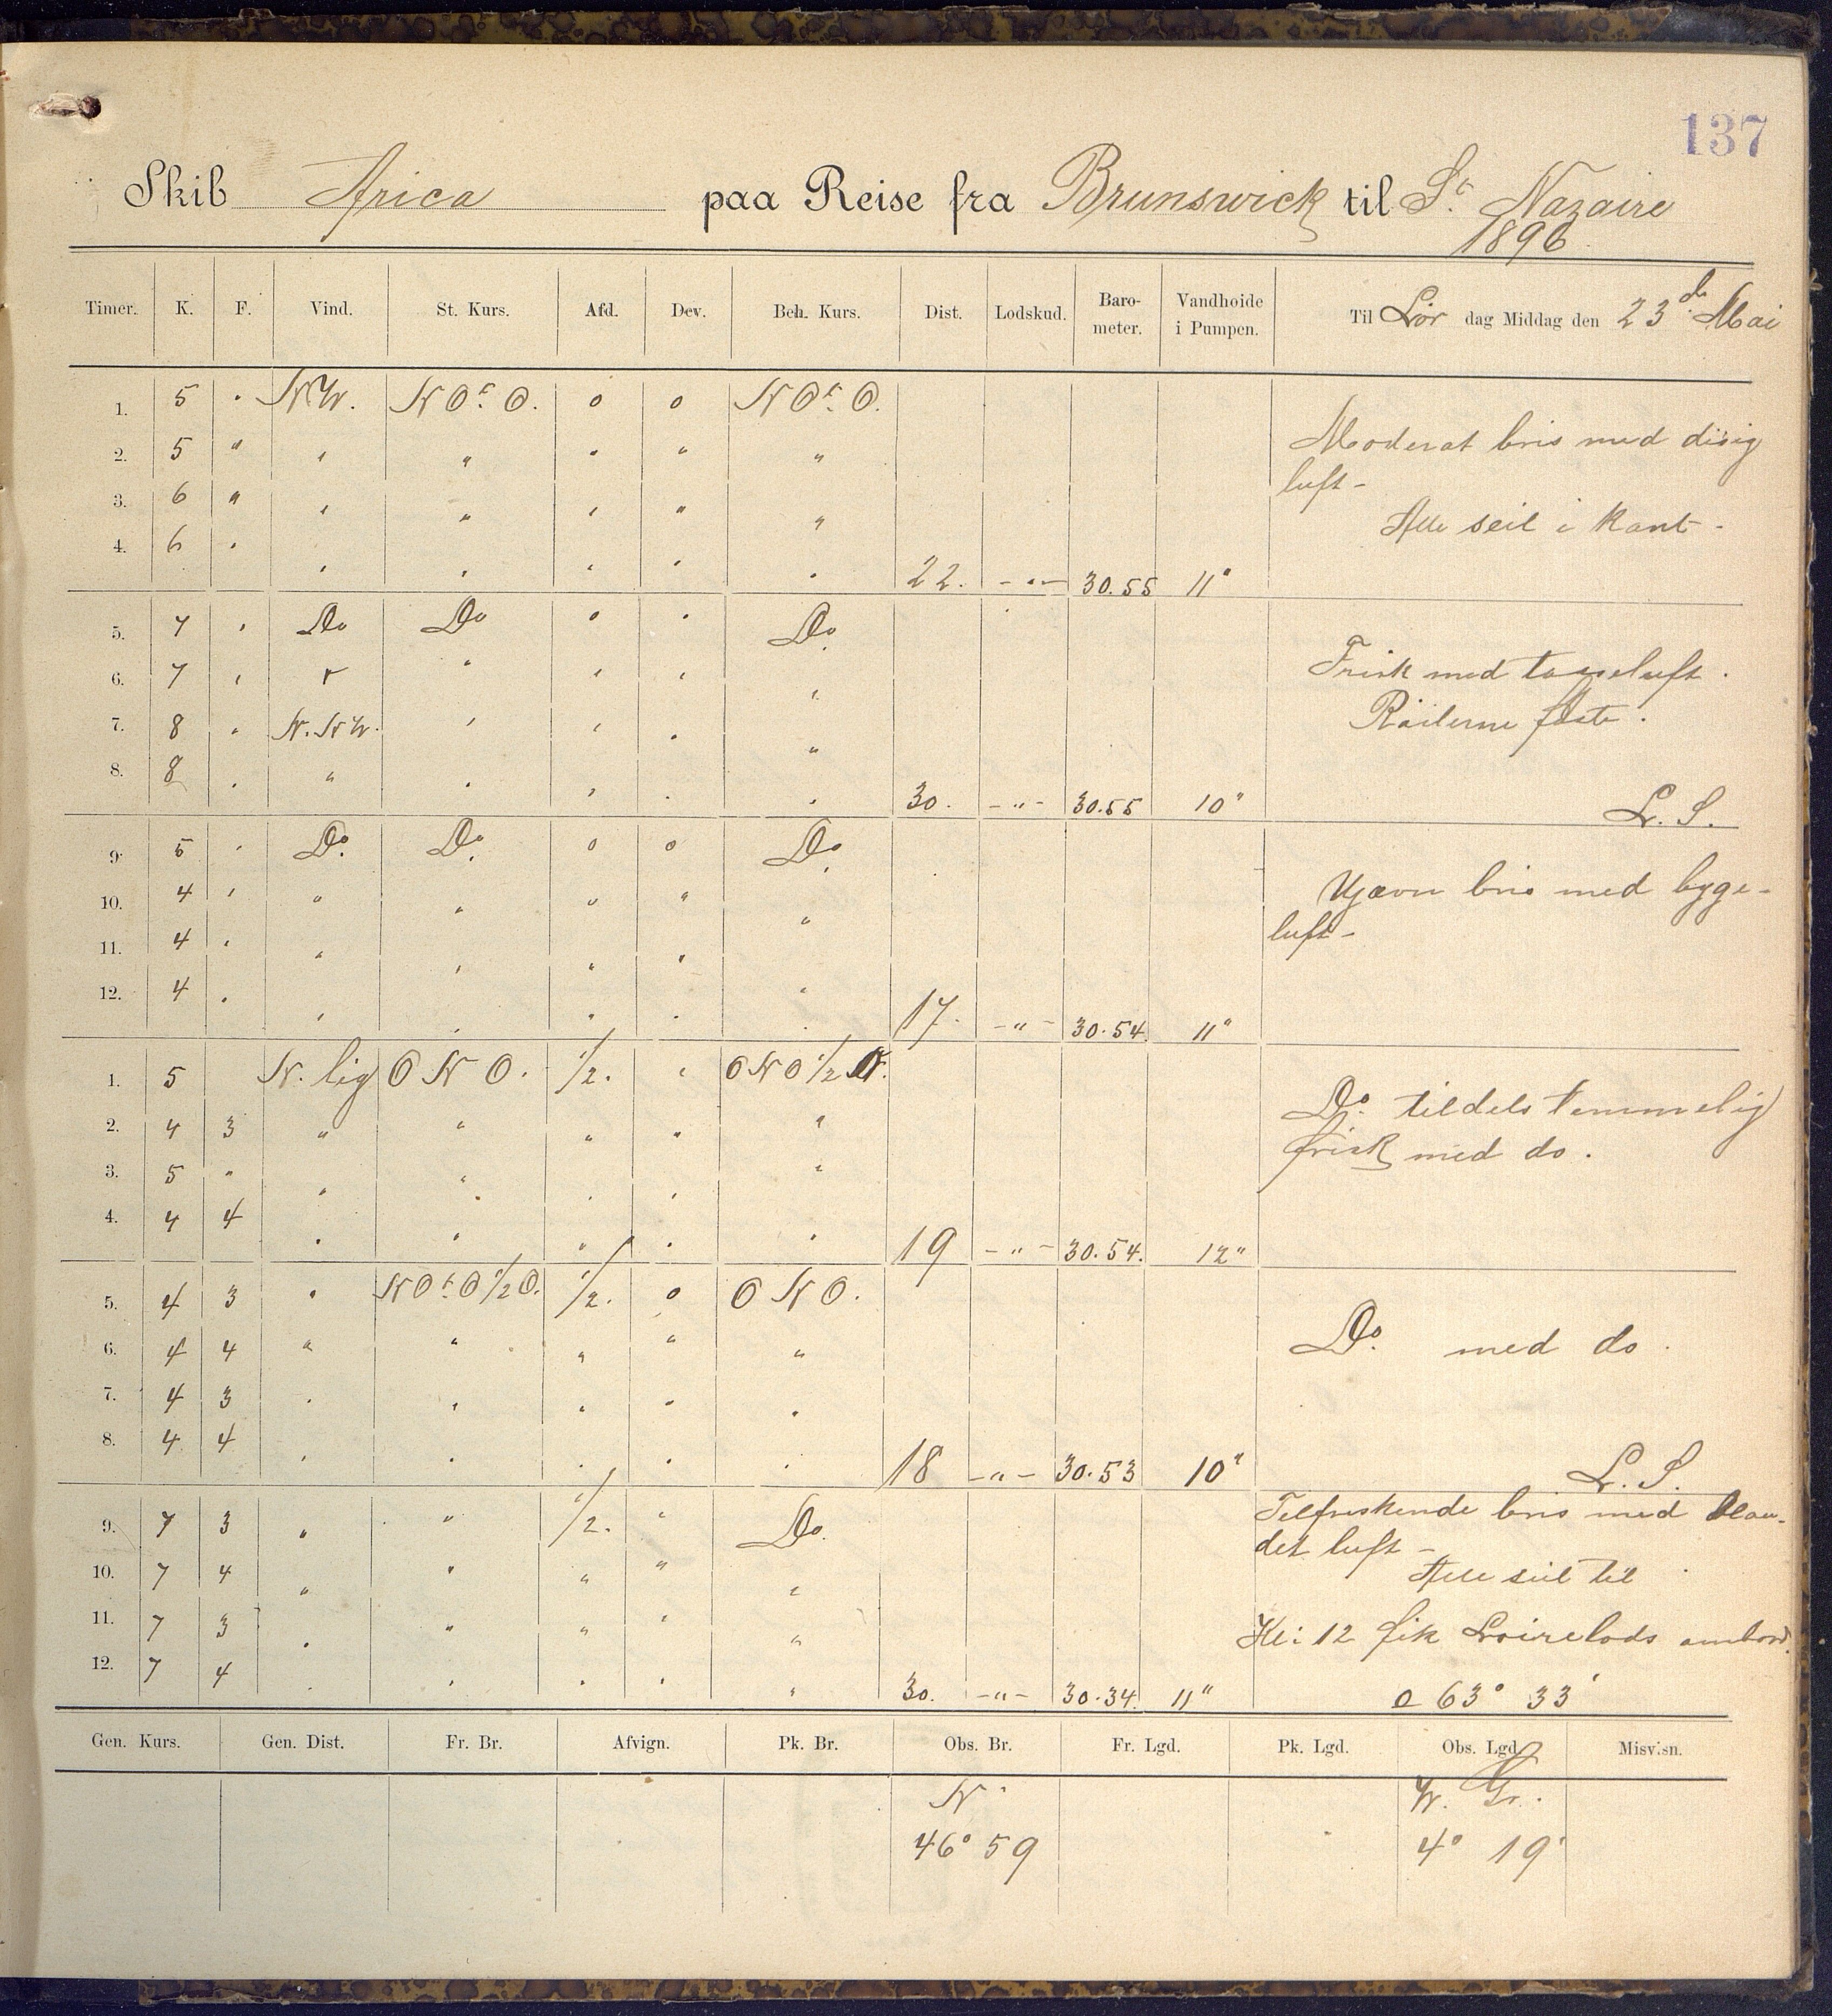 137
Skib Arica paa Reise fra Brunswick til St. Nazaire
1896
Timer. K. F. Vind. St. Kurs. Afd. Dev. Beh. Kurs. Dist. Lodskud. Baro-meter. Vandhoide i Pumpen. Til Lör dag Middag den 23de Mai
1. 5 " NW. NOtO. 0 0 NOtO.
2. 5 " " " " " " Moderat bris med disig
luft -
3. 6 " " " " " "
Alle seil i kant -
4. 6 " " " " " " 22. -"- 30.55 11"
5. 7 " Do Do " " Do
6. 7 " " " " " " Frisk med
7. 8 " N.NW. " " " "
8. 8 " " " " " " 30. -"- 30.55 10"
L. S.
9. 5 " Do. Do. 0 0 Do.
10. 4 " " " " " " Ujævn bris med byge-
luft -
11. 4 " " " " " "
12. 4 " " " " " " 17. -"- 30.54. 11"
1. 5 N.lig ONO. 1/2. " ONO 1/2
Do. tildels temmelig
2. 4 3 " " " " "
frisk med do.
3. 5 " " " " " "
4. 4 4 " " " " " 19 -"- 30.54. 12"
5. 4 3 " NOtO 1/2 O. 1/2. 0 ONO.
6. 4 4 " " " " " Do. med do.
7. 4 3 " " " " "
8. 4 4 " " " " " 18 -"- 30.53 10"
L. S.
9. 7 3 " " 1/2. " Do. Tilfriskende bris med blan-
det luft -
10. 7 4 " " " " " Alle seil til
11. 7 3 " " " " " Kl: 12 fik Loirelods ombord.
12. 7 4 " " " " " 30. -"- 30.34. 11" 63° 33'
Gen. Kurs. Gen. Dist. Fr. Br. Afvign. Pk. Br. Obs. Br. Fr. Lgd. Pk. Lgd. Obs. Lgd. Misvisn.
N. W. Gr.
46° 59 4° 19'